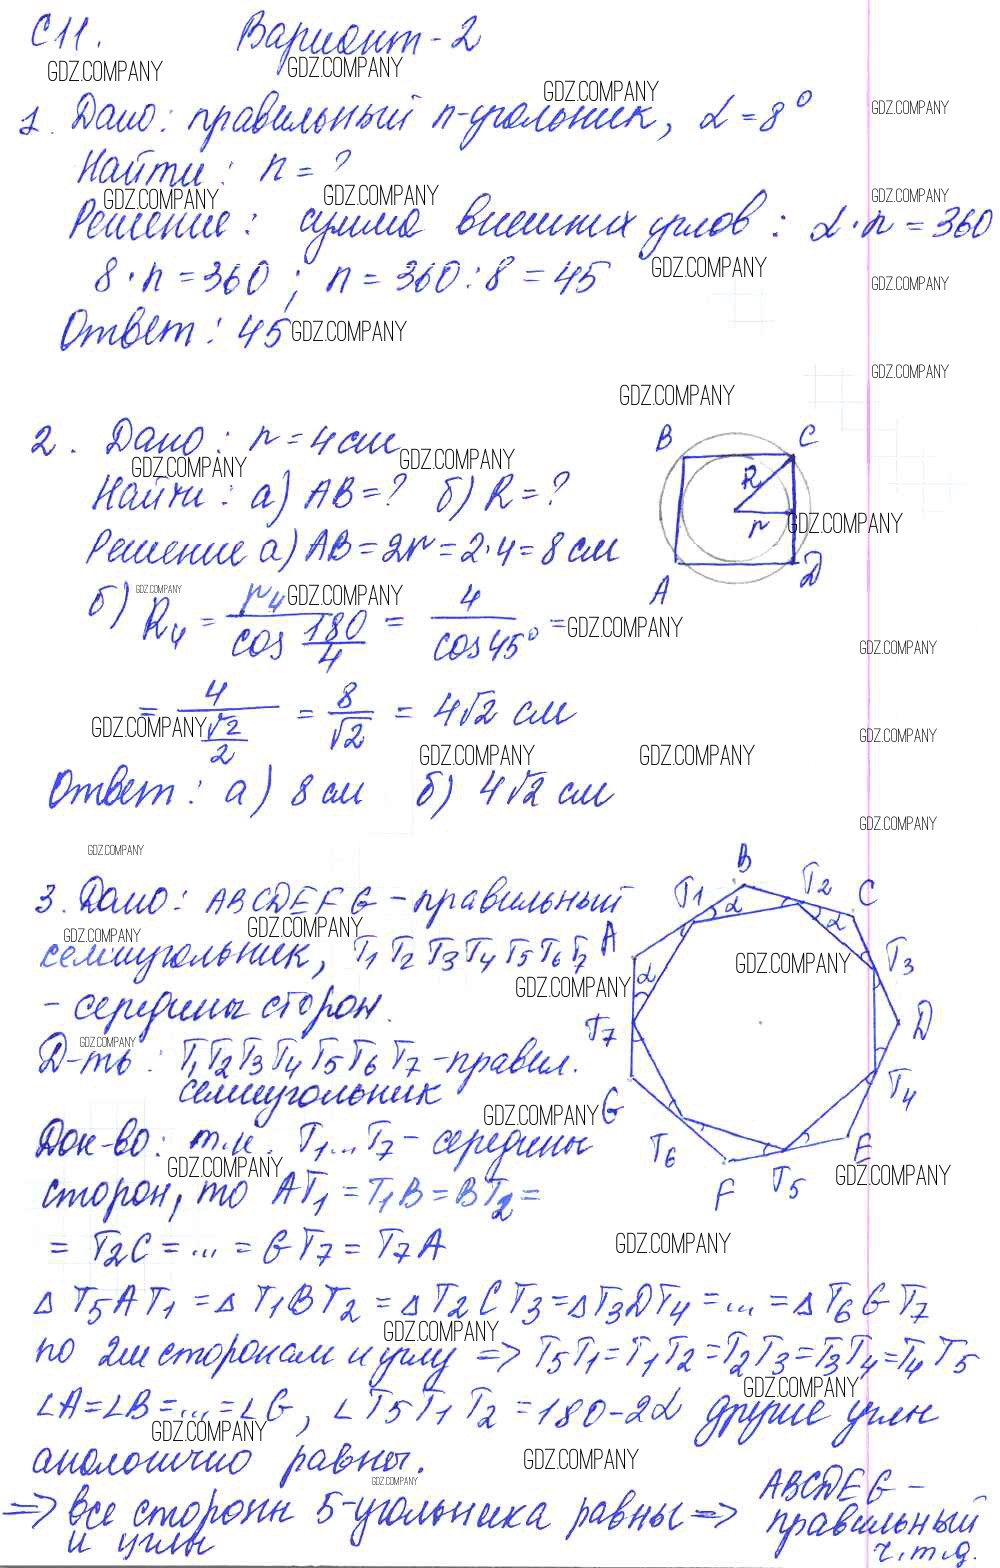 С11. Вариант-2
1. Дано: правильный n-угольник, α = 8°
Найти: n = ?
Решение: сумма внешних углов: α·n = 360
8·n = 360; n = 360:8 = 45
Ответ: 45
2. Дано: r = 4 см
Найти: а) AB = ? б) R = ?
Решение а) AB = 2r = 2·4 = 8 см
б) R₄ = r₄/cos 180/4 = 4/cos 45° =
= 4/(√2/2) = 8/√2 = 4√2 см
Ответ: а) 8 см б) 4√2 см
B C
R
r
A D
3. Дано: ABCDEFG - правильный
семиугольник, T₁ T₂ T₃ T₄ T₅ T₆ T₇
- середины сторон.
Д-ть: T₁T₂T₃T₄T₅T₆T₇ - правил.
семиугольник
Док-во: т.к. T₁...T₇ - середины
сторон, то AT₁ = T₁B = BT₂ =
= T₂C = ... = GT₇ = T₇A
Δ T₅AT₁ = Δ T₁BT₂ = Δ T₂CT₃ = Δ T₃DT₄ = ... = Δ T₆GT₇
по 2ум сторонам и углу => T₅T₁ = T₁T₂ = T₂T₃ = T₃T₄ = T₄T₅
∠A = ∠B = ... = ∠G, ∠T₅T₁T₂ = 180-2α другие углы
аналогично равны.
=> все стороны 5-угольника равны => ABCDEG -
и углы правильный
ч.т.д.
B
T₁ α T₂ C
α
A T₃
α
T₇ D
G T₄
T₆ E
F T₅
GDZ.COMPANY